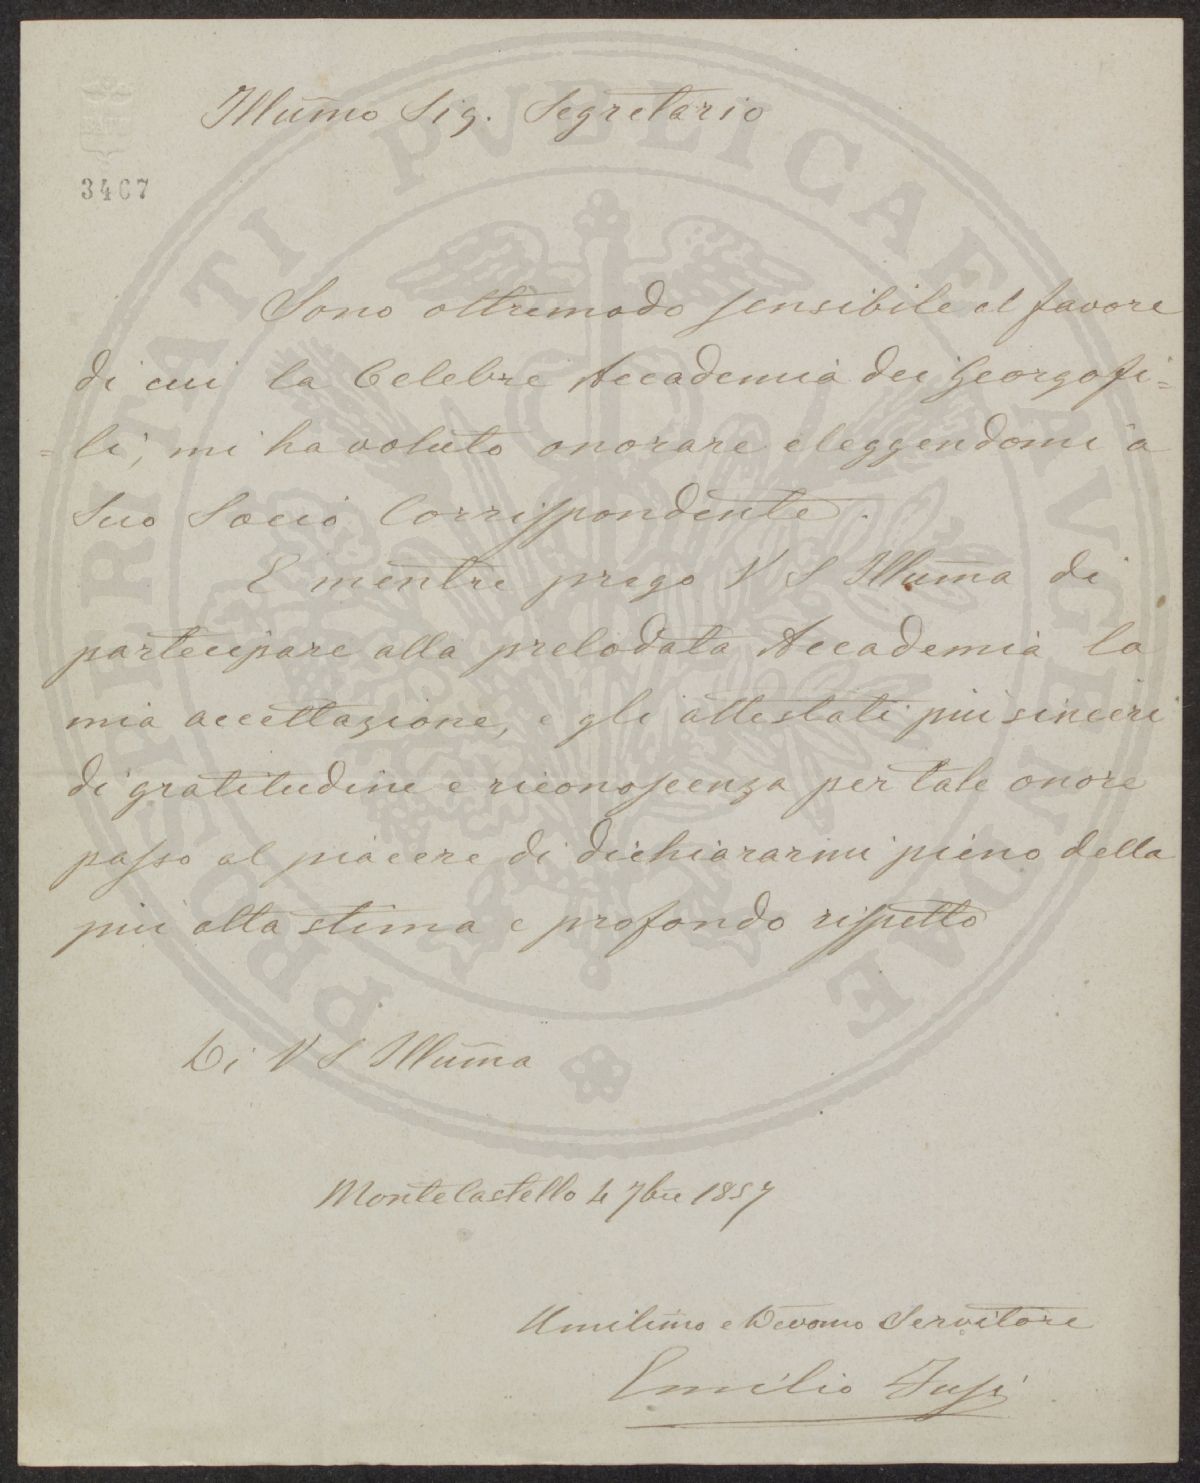 Illumo Sig. Segretario
BATH
3467
Sono oltremodo sensibile al favore
di cui la Celebre Accademia dei Georgofi=
=li, mi ha voluto onorare eleggendomi a
Suo Socio Corrispondente.
E mentre prego V S Illuma di
partecipare alla prelodata Accademia la
mia accettazione, e gli attestati più sinceri
di gratitudine e riconoscenza per tale onore
passo al piacere di dichiararmi pieno della
più alta stima e profondo rispetto
Di V S Illuma
Montecastello 4 7bre 1857
Umilimo e Devomo Servitore
Emilio
PROSPERITATI PVBLICAE AVGENDAE